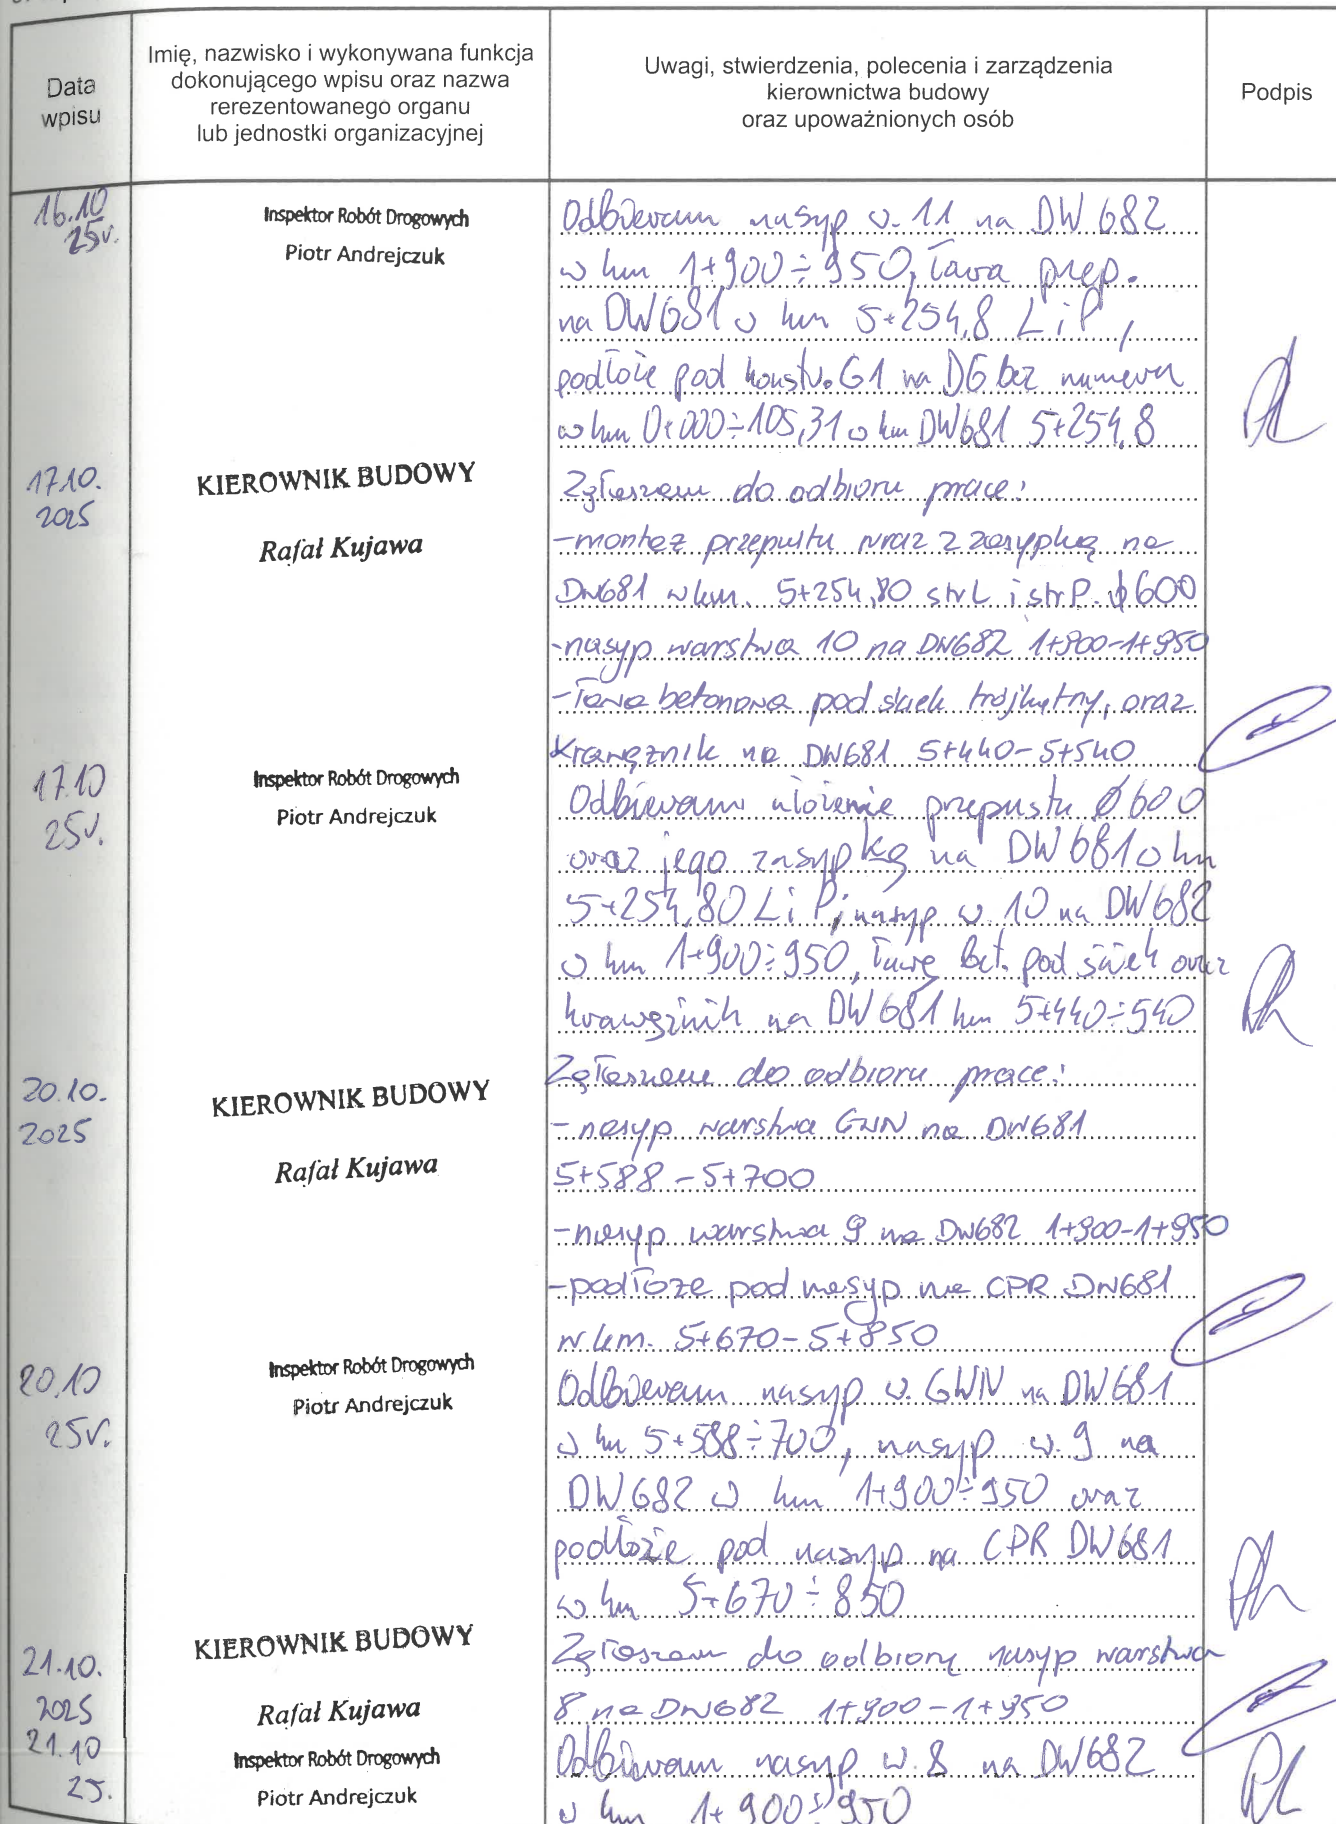 Data
wpisu
Imię, nazwisko i wykonywana funkcja
dokonującego wpisu oraz nazwa
rerezentowanego organu
lub jednostki organizacyjnej
Uwagi, stwierdzenia, polecenia i zarządzenia
kierownictwa budowy
oraz upoważnionych osób
Podpis
16.10
25r.
Inspektor Robót Drogowych
Piotr Andrejczuk
Odbieram nasyp w. 11 na DW 682
w km 1+900÷950, ława przep.
na DW681 w km 5+254,8 L i P,
podłoże pod konstr. G1 na DG bez numeru
w km 0+000÷105,31 w km DW681 5+254,8
17.10.
2025
KIEROWNIK BUDOWY
Rafał Kujawa
Zgłaszam do odbioru prace:
-montaż przepustu wraz z zasypką na
DW681 w km. 5+254,80 str L i str P. ϕ600
-nasyp warstwa 10 na DW682 1+900-1+950
-ława betonowa pod ściek trójkątny, oraz
krawężnik na DW681 5+440-5+540
17.10
25r.
Inspektor Robót Drogowych
Piotr Andrejczuk
Odbieram ułożenie przepustu Ø600
oraz jego zasypkę na DW681 w km
5+254,80 L i P, nasyp w 10 na DW682
w km 1+900÷950, ławę bet. pod ściek oraz
krawężnik na DW681 km 5+440÷540
20.10.
2025
KIEROWNIK BUDOWY
Rafał Kujawa
Zgłaszam do odbioru prace:
- nasyp warstwa GWN na DW681
5+588-5+700
-nasyp warstwa 9 na DW682 1+900-1+950
-podłoże pod nasyp na CPR DW681
w km. 5+670-5+850
20.10
25r.
Inspektor Robót Drogowych
Piotr Andrejczuk
Odbieram nasyp w. GWN na DW681
w km 5+588÷700, nasyp w. 9 na
DW682 w km 1+900÷950 oraz
podłoże pod nasyp na CPR DW681
w km 5+670÷850
21.10.
2025
KIEROWNIK BUDOWY
Rafał Kujawa
Zgłaszam do odbioru nasyp warstwa
8 na DW682 1+900-1+950
21.10
25.
Inspektor Robót Drogowych
Piotr Andrejczuk
Odbieram nasyp w. 8 na DW682
w km 1+900÷950